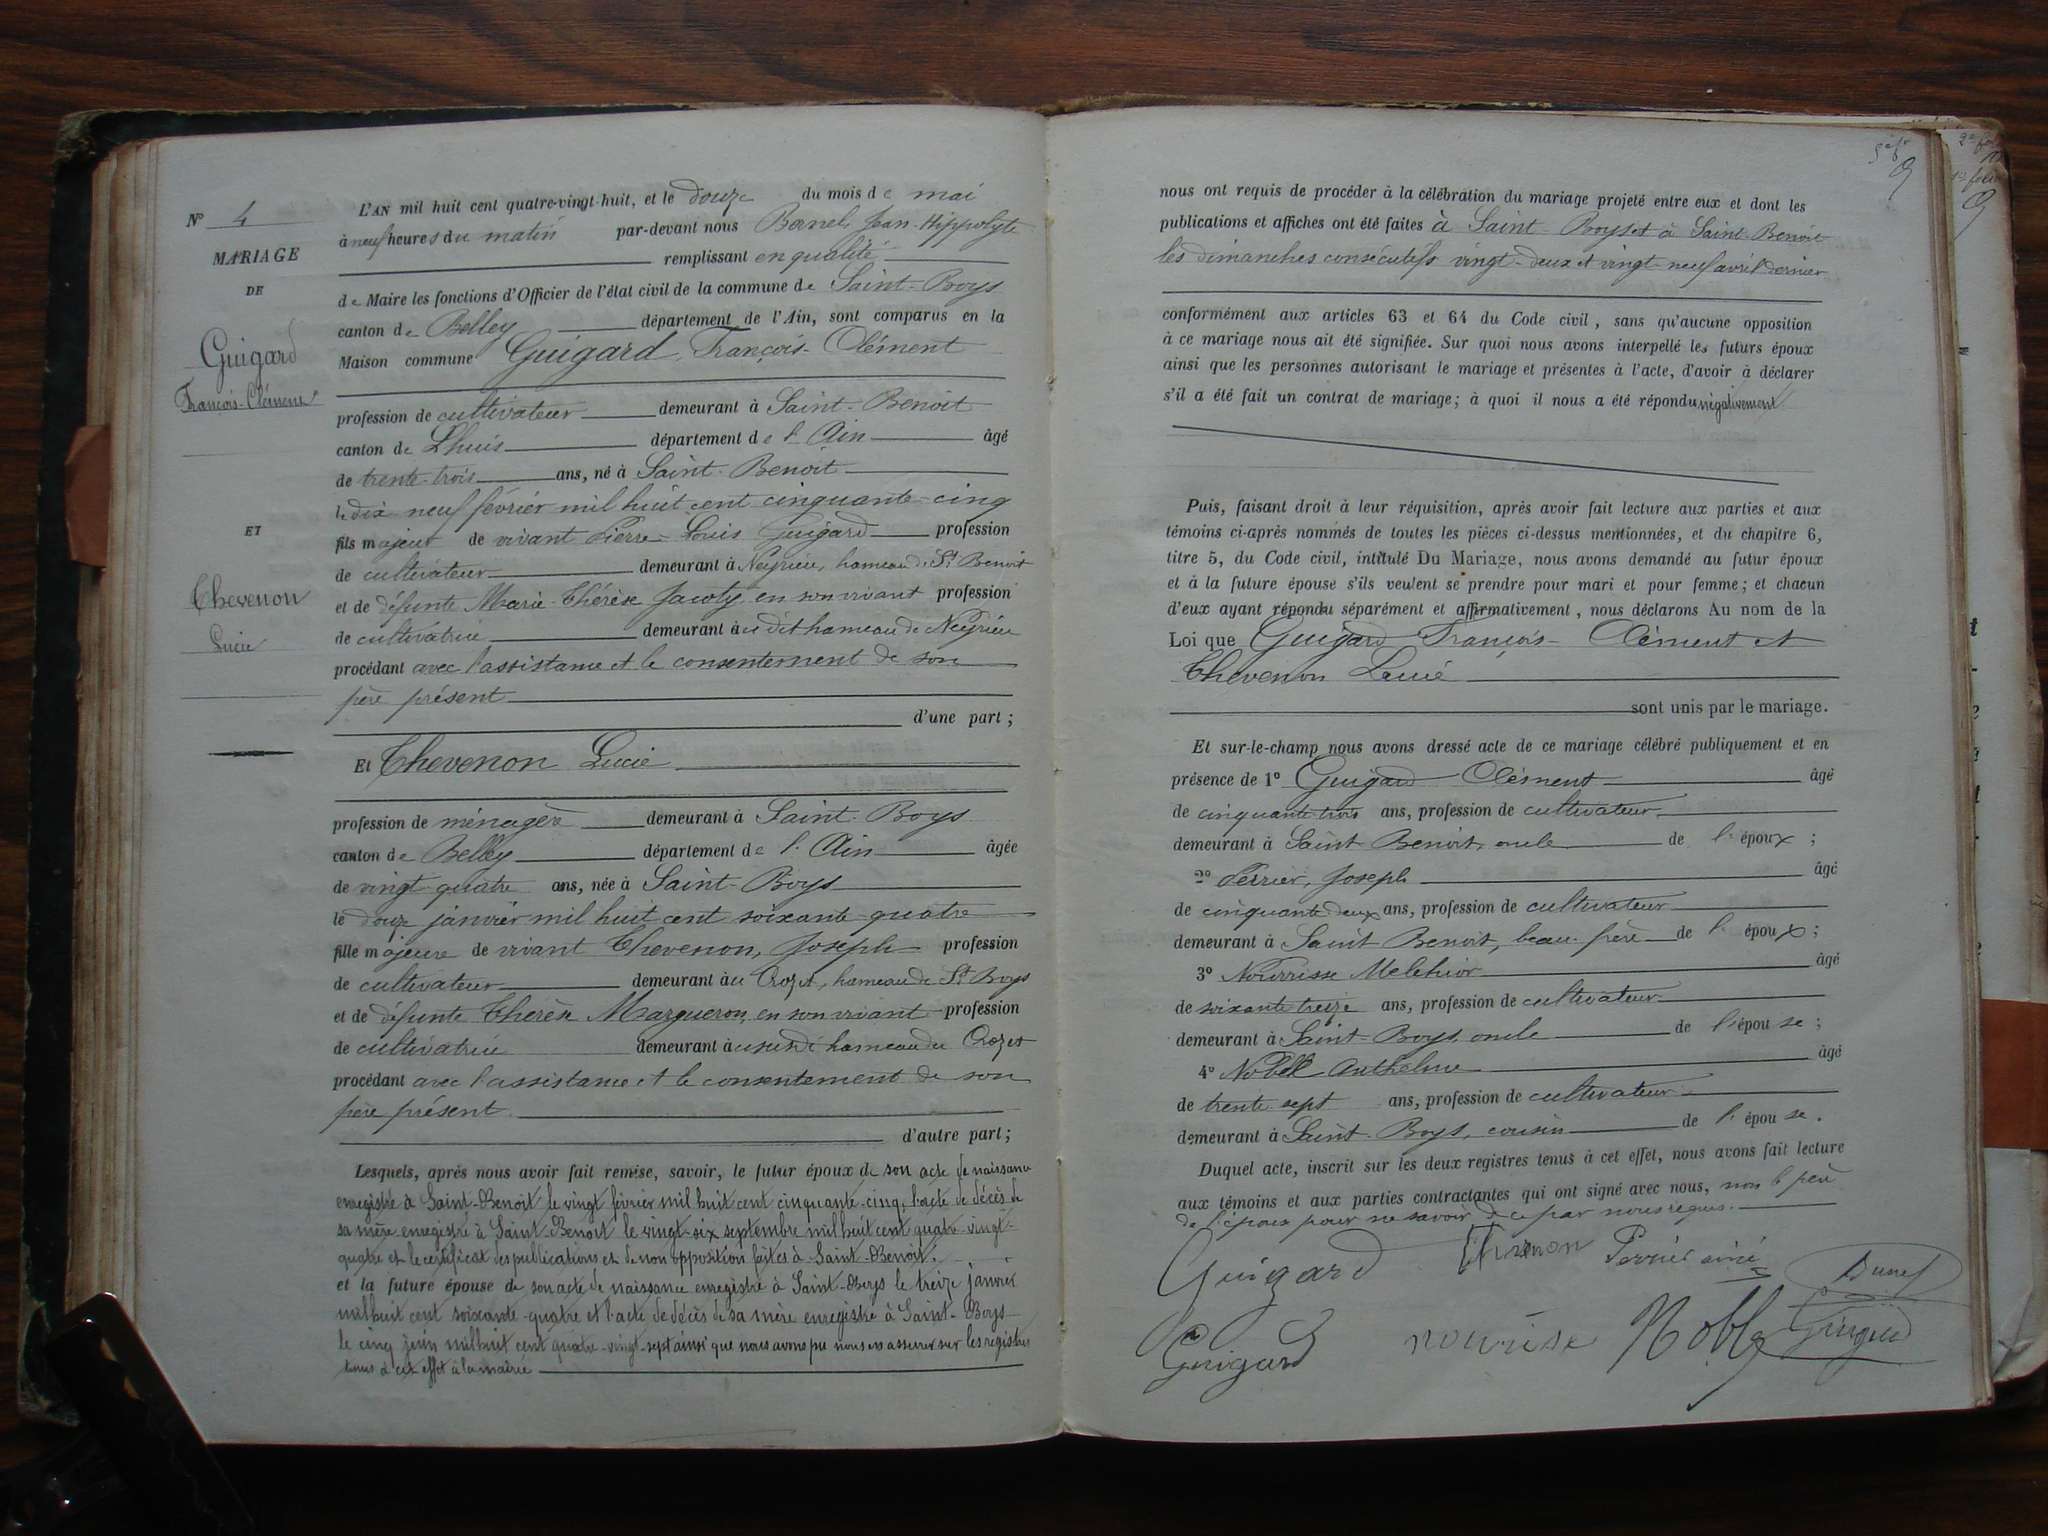 N° 4
MARIAGE
DE
Guigard
François-Clément
ET
Thevenon
Lucie
L'AN mil huit cent quatre-vingt-huit, et le douze du mois de mai
à neuf heures du matin par-devant nous Jean-Hippolyte
remplissant en qualité
de Maire les fonctions d'Officier de l'état civil de la commune de Saint-Boys
canton de Belley département de l'Ain, sont comparus en la
Maison commune Guigard, François-Clément
profession de cultivateur demeurant à Saint-Benoit
canton de Lhuis département de l'Ain âgé
de trente-trois ans, né à Saint-Benoit
le dix-neuf février mil huit cent cinquante-cinq
fils majeur de vivant Pierre-Louis Guigard profession
de cultivateur demeurant à Neyrieu, hameau de St Benoit
et de défunte Marie-Thérèse Jacoty en son vivant profession
de cultivatrice demeurant au dit hameau de Neyrieu
procédant avec l'assistance et le consentement de son
père présent
d'une part ;
Et Thevenon Lucie
profession de ménagère demeurant à Saint-Boys
canton de Belley département de l'Ain âgée
de vingt-quatre ans, née à Saint-Boys
le douze janvier mil huit cent soixante-quatre
fille majeure de vivant Thevenon, Joseph profession
de cultivateur demeurant au Crozet, hameau de St Boys
et de défunte Thérèse Margueron, en son vivant profession
de cultivatrice demeurant au susdit hameau du Crozet
procédant avec l'assistance et le consentement de son
père présent
d'autre part ;
Lesquels, après nous avoir fait remise, savoir, le futur époux de son acte de naissance
enregistré à Saint-Benoit le vingt février mil huit cent cinquante-cinq, l'acte de décès de
sa mère enregistré à Saint-Benoit le vingt-six septembre mil huit cent quatre-vingt-
quatre et le certificat des publications et de non opposition faites à Saint-Benoit.
et la future épouse de son acte de naissance enregistré à Saint-Boys le treize janvier
mil huit cent soixante-quatre et l'acte de décès de sa mère enregistré à Saint-Boys
le cinq juin mil huit cent quatre-vingt-sept ainsi que nous avons pu nous en assurer sur les registres
tenus à cet effet à la mairie
nous ont requis de procéder à la célébration du mariage projeté entre eux et dont les
publications et affiches ont été faites à Saint-Boys et à Saint-Benoit
les dimanches consécutifs vingt-deux et vingt-neuf avril dernier
conformément aux articles 63 et 64 du Code civil, sans qu'aucune opposition
à ce mariage nous ait été signifiée. Sur quoi nous avons interpellé les futurs époux
ainsi que les personnes autorisant le mariage et présentes à l'acte, d'avoir à déclarer
s'il a été fait un contrat de mariage ; à quoi il nous a été répondu négativement
Puis, faisant droit à leur réquisition, après avoir fait lecture aux parties et aux
témoins ci-après nommés de toutes les pièces ci-dessus mentionnées, et du chapitre 6,
titre 5, du Code civil, intitulé Du Mariage, nous avons demandé au futur époux
et à la future épouse s'ils veulent se prendre pour mari et pour femme ; et chacun
d'eux ayant répondu séparément et affirmativement, nous déclarons Au nom de la
Loi que Guigard François-Clément et
Thevenon Lucie
sont unis par le mariage.
Et sur-le-champ nous avons dressé acte de ce mariage célébré publiquement et en
présence de 1° Guigard Clément âgé
de cinquante trois ans, profession de cultivateur
demeurant à Saint Benoit, oncle de l'époux ;
2° Perrier, Joseph âgé
de cinquante deux ans, profession de cultivateur
demeurant à Saint Benoit, beau-frère de l'époux ;
3° Nourrisse Melchior âgé
de soixante treize ans, profession de cultivateur
demeurant à Saint-Boys, oncle de l'épouse ;
4° Anthelme âgé
de trente sept ans, profession de cultivateur
demeurant à Saint-Boys, cousin de l'épouse.
Duquel acte, inscrit sur les deux registres tenus à cet effet, nous avons fait lecture
aux témoins et aux parties contractantes qui ont signé avec nous, non le père
de l'époux pour ne savoir de ce par nous requis.
Guigard Thevenon Perrier ainé
Guigard nourise Noble